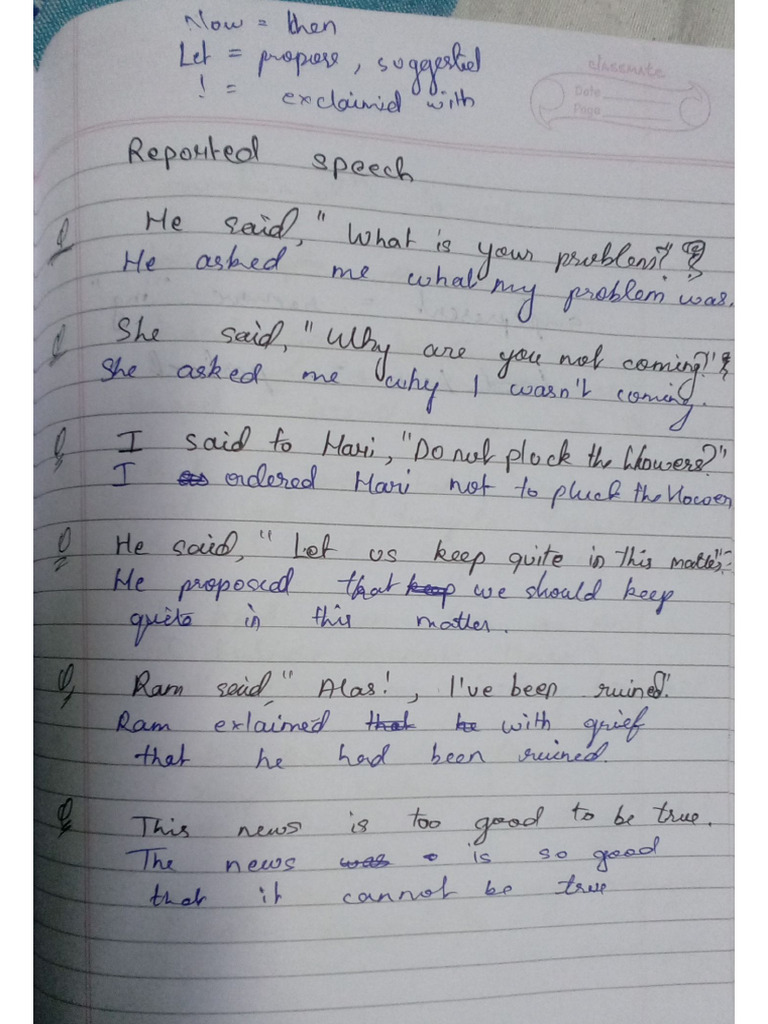 Now = then
Let = propose, suggested
! = exclaimed with
classmate
Date
Page
Reported speech
Q He said, "What is your problem?"
He asked me what my problem was.
Q She said, "Why are you not coming?"
She asked me why I wasn't coming.
Q I said to Hari, "Do not pluck the flowers?"
I ordered Hari not to pluck the flower
Q He said, "Let us keep quite in this matter".
He proposed that keep we should keep
quite in this matter.
Q Ram said," Alas!, I've been ruined".
Ram exlaimed that he with grief
that he had been ruined.
Q This news is too good to be true.
The news was is so good
that it cannot be true